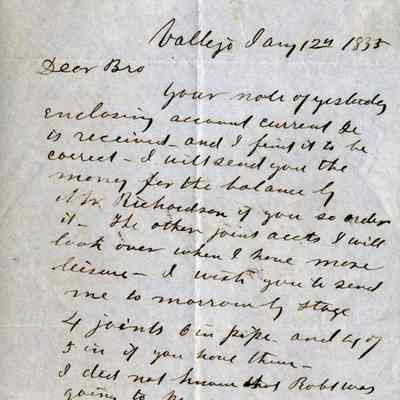 Vallejo Jany 12th 1855
Dear Bro
Your note of yesterday
enclosing account current &c
is received - and I find it to be
correct - I will send you the
money for the balance by
Mr. Richardson if you so order
it - The other joint accts I will
look over when I have more
leisure - I wish you to send
me to morrow by stage
4 joints 6 in pipe and 4 of
5 in if you have them -
I did not know that Robt was
going to